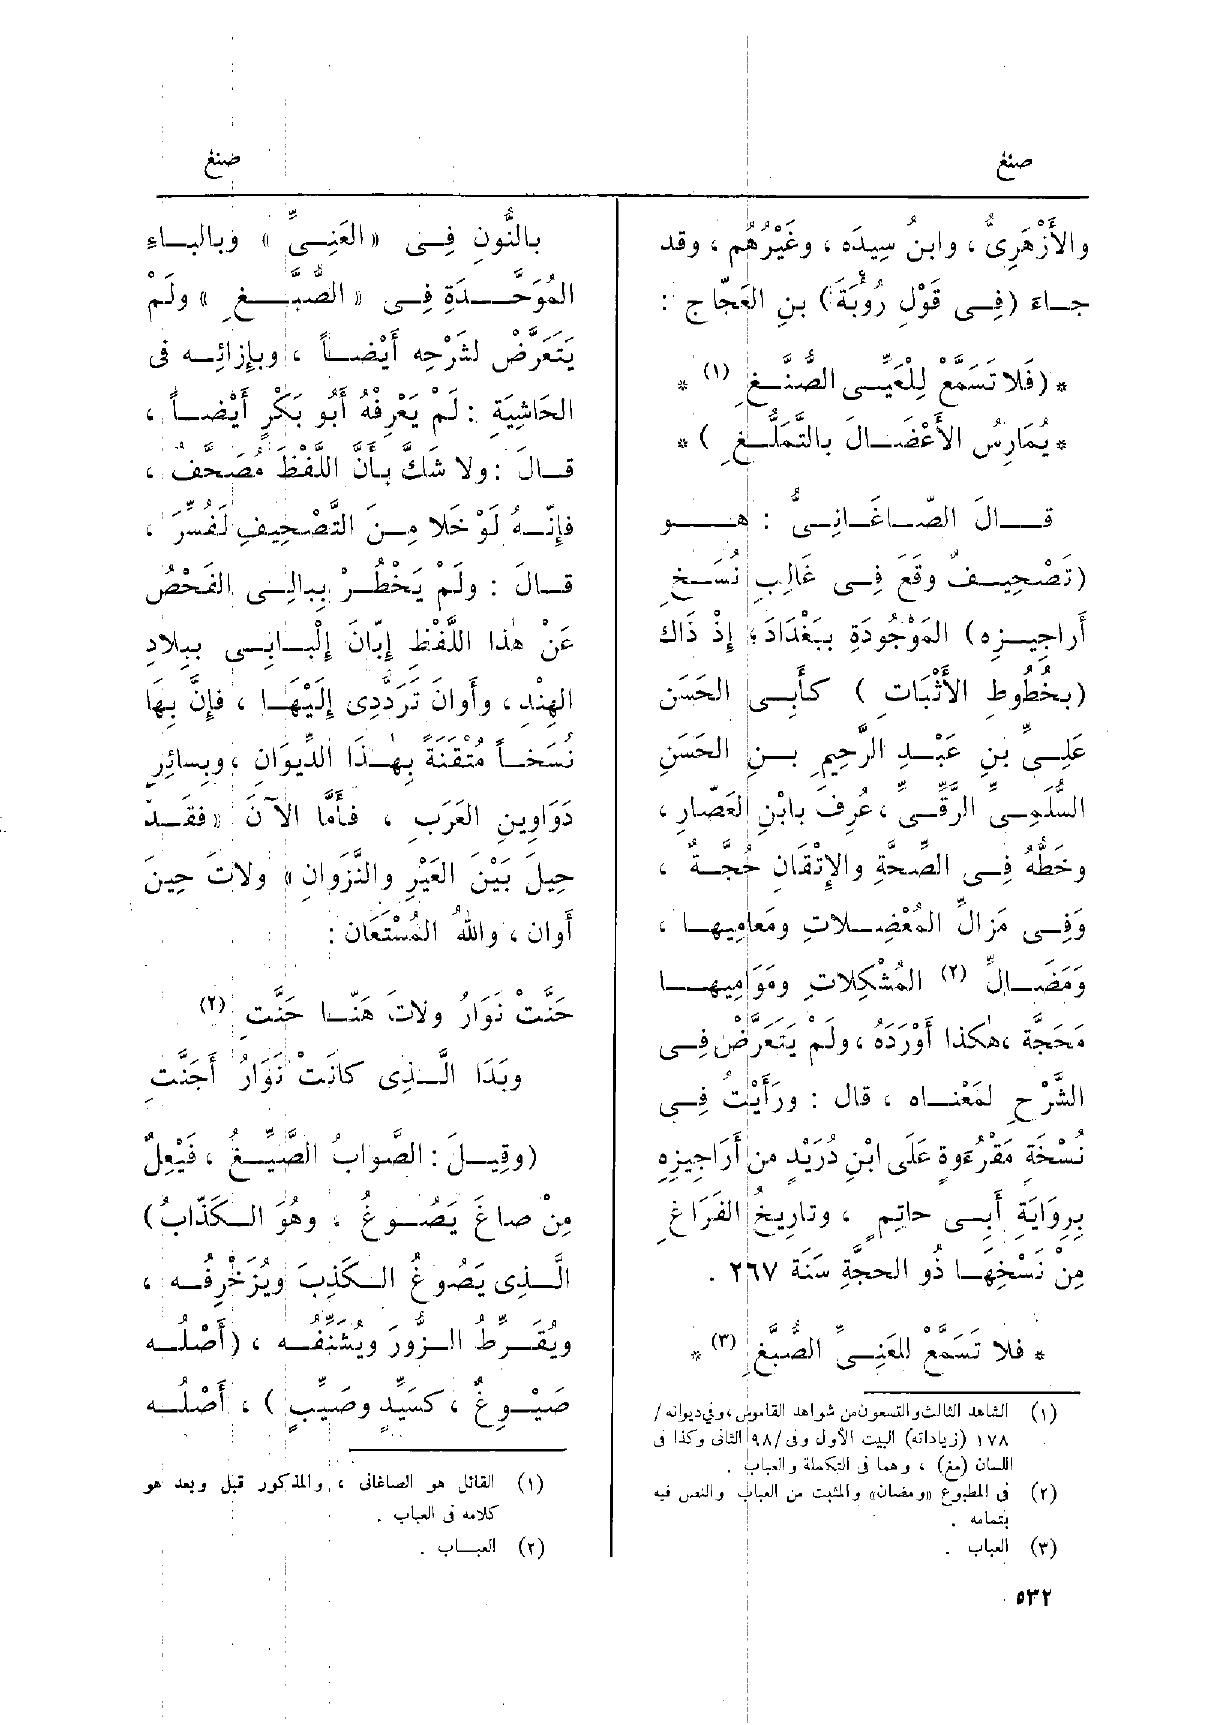 صنغ
صنغ
والأَزْهَرِىُّ ، وابنُ سِيدَه ، وغَيْرُهُم ، وقد
جـاءَ (فِـى قَوْلِ رُؤْبَةَ) بنِ العَجّاجِ :
* (فَلا تَسَمَّعْ لِلْعَيِـىِّ الصُّنَّـغِ (١) *
* يُمَارِسُ الأَعْضَـالَ بِالتَّمَلُّـغِ ) *
قـــالَ الصّـاغَـانِـىُّ : هــو
(تَصْحِيـفٌ وقَعَ فِـى غَالِبِ نُسَـخِ
أَراجِيـزِه) المَوْجُودَةِ بِبَغْدَادَ ؛ إِذْ ذَاكَ
(بخُطُوطِ الأَثْبَاتِ ) كأَبِـى الحَسَنِ
عَلِـىِّ بنِ عَبْـدِ الرَّحِيمِ بـنِ الحَسَنِ
السُّلَمِـىِّ الرَّقِّـىِّ ، عُرِفَ بابْنِ العَصّارِ ،
وخَطُّهُ فِـى الصِّحَّةِ والإِتْقَانِ حُجَّـةٌ ،
وَفِـى مَزَالِّ المُعْضِـلاتِ ومَعامِيهـا ،
وَمَضَـالِّ (٢) المُشْكِلاتِ ومَوَامِيهـا
مَحَجَّة ، هٰكذا أَوْرَدَه ، ولَمْ يَتَعَرَّضْ فِـى
الشَّرْحِ لمَعْنـاه ، قال : ورَأَيْتُ فِـى
نُسْخَةٍ مَقْرُوءةٍ عَلَى ابْنِ دُرَيْدٍ من أَرَاجِيزِه
بِرِوَايَةِ أَبِـى حاتِمٍ ، وتارِيخُ الفَرَاغِ
مِنْ نَسْخِهَـا ذُو الحجَّةِ سَنَةَ ٢٦٧ .
* فلا تَسَمَّعْ للغَنِـىِّ الصُّبَّغِ (٣) *
(١) الشاهد الثالث والتسعون من شواهد القاموس ، وفي ديوانه /
١٧٨ (زياداته) البيت الأول وفى /٩٨ الثانى وكذا فى
اللسان (مغ) ، وهما فى التكملة والعباب .
(٢) فى المطبوع «ومضان» والمثبت من العباب والنص فيه
بتمامه .
(٣) العباب .
٥٣٢
بالنُّونِ فِـى «الغَنِـىِّ » وَبالبـاءِ
المُوَحَّـدَةِ فِـى « الصُّبَّـغِ » ولَمْ
يَتَعَرَّضْ لشَرْحِه أَيْضـاً ، وبِإِزائِـه فى
الحَاشِيَةِ : لَمْ يَعْرِفْهُ أَبُو بَكْرٍ أَيْضـاً ،
قـالَ : ولا شَكَّ بأَنَّ اللَّفْظَ مُصَحَّفٌ ،
فإِنَّـهُ لَوْ خَلا مِـنَ التَّصْحِيفِ لَفُسِّرَ ،
قـالَ : ولَمْ يَخْطُـرْ بِبالِـى الفَحْصُ
عَنْ هٰذا اللَّفْظِ إِبّانَ إِلْبـابِـى بِبلادِ
الهِنْدِ ، وأَوانَ تَرَدُّدِى إِلَيْهَـا ، فإِنَّ بِهَا
نُسَخـاً مُتْقَنَةً بِهٰـذَا الدِّيوَانِ ، وبِسائِرِ
دَوَاوِينِ العَرَبِ ، فأَمَّا الآنَ «فقَـدْ
حِيلَ بَيْنَ العَيْرِ والنَّزَوانِ » ولاتَ حِينَ
أَوان ، واللهُ المُسْتَعَان :
حَنَّتْ نَوَارُ ولاتَ هَنّـا حَنَّتِ (٢)
وبَدَا الَّـذِى كانَتْ نَوَارُ أَجَنَّتِ
(وقِيـلَ : الصَّوابُ الصَّيِّـغُ ، فَيْعِلٌ
مِنْ صاغَ يَصُـوغُ ، وهُوَ الـكَذّابُ)
الَّـذِى يَصُوغُ الـكَذِبَ ويُزَخْرِفُـه ،
ويُقَـرِّطُ الـزُّورَ ويُشَنِّفُـه ، (أَصْلُـه
صَيْـوِغٌ ، كسَيِّدٍ وصَيِّبٍ ) ، أَصْلُـه
(١) القائل هو الصاغانى ، والمذكور قبل وبعد هو
كلامه فى العباب .
(٢) العبـاب .